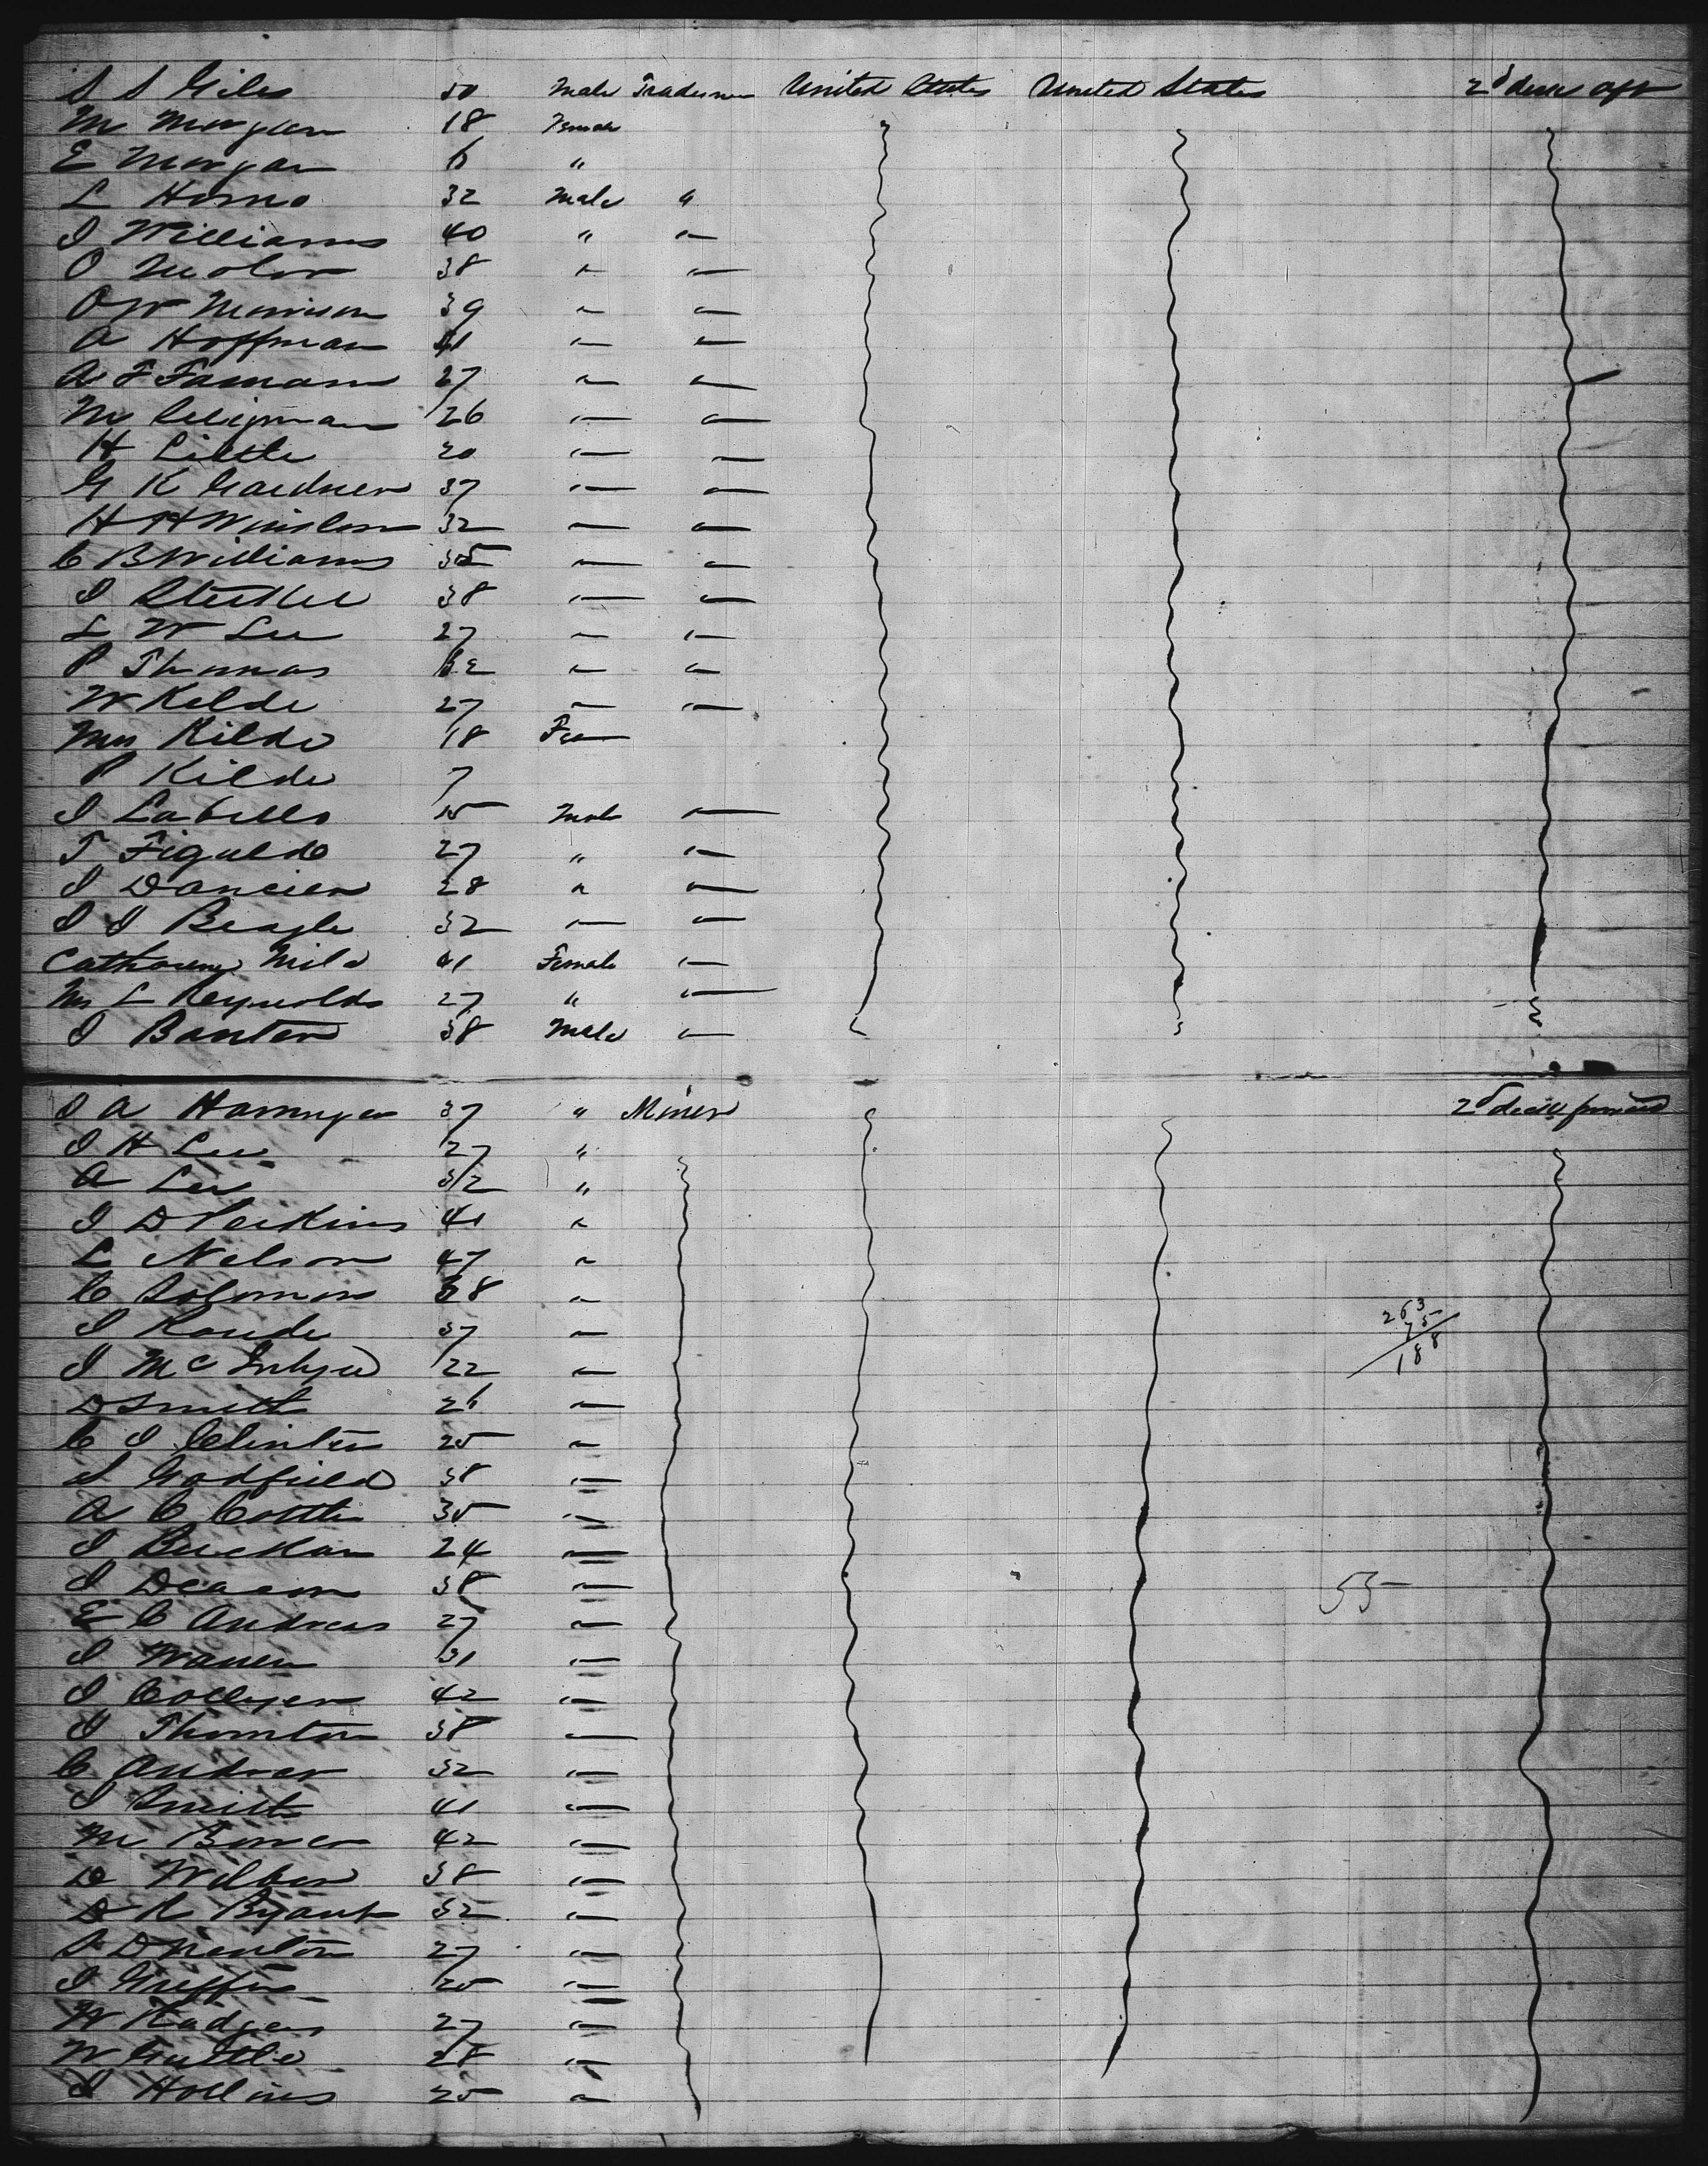 S S Giles 50 Male Tradesman United States United States 2d deck aft
M Morgan 18 Female
E Morgan 6 "
L Horno 32 Male "
J Williams 40 " "
O 38 " "
O W Morrison 39 " "
A Hoffman 41 " "
A F 27 " "
M 26 " "
H Little 20 " "
G K Gardner 37 " "
H H Winslow 32 " "
C B Williams 35 " "
J 38 " "
L W Lee 27 " "
P Thomas " "
W Kilde 27 " "
Mrs Kilde 18 Fe
P Kilde 7
J Labello 15 Male "
T Figueldo 27 " "
J 28 " "
J J Beagle 32 " "
Milo 41 Female "
Mrs L Reynolds 27 " "
J Banter 38 Male "
37 " Miner 2d deck forward
J H Lee 27 "
A Lee 32 "
J D Perkins 41 "
L Nelson 47 "
C Solomon 38 "
J 37 "
263
75
188
J Mc Intyre 22 "
D Smith 26 "
C J Clinton 25 "
J Godfield 38 "
A C Cottle 35 "
J 24 "
J Deacon 38 "
55
E C Andreas 27 "
J Warren 31 "
J Collyer 42 "
J Thornton 38 "
C Andrew 32 "
J Smith 41 "
M 42 "
D Wilber 38 "
D R Bryant 32 "
27 "
J Griffin 25 "
W Rodgers 27 "
W 28 "
J Hollins 25 "